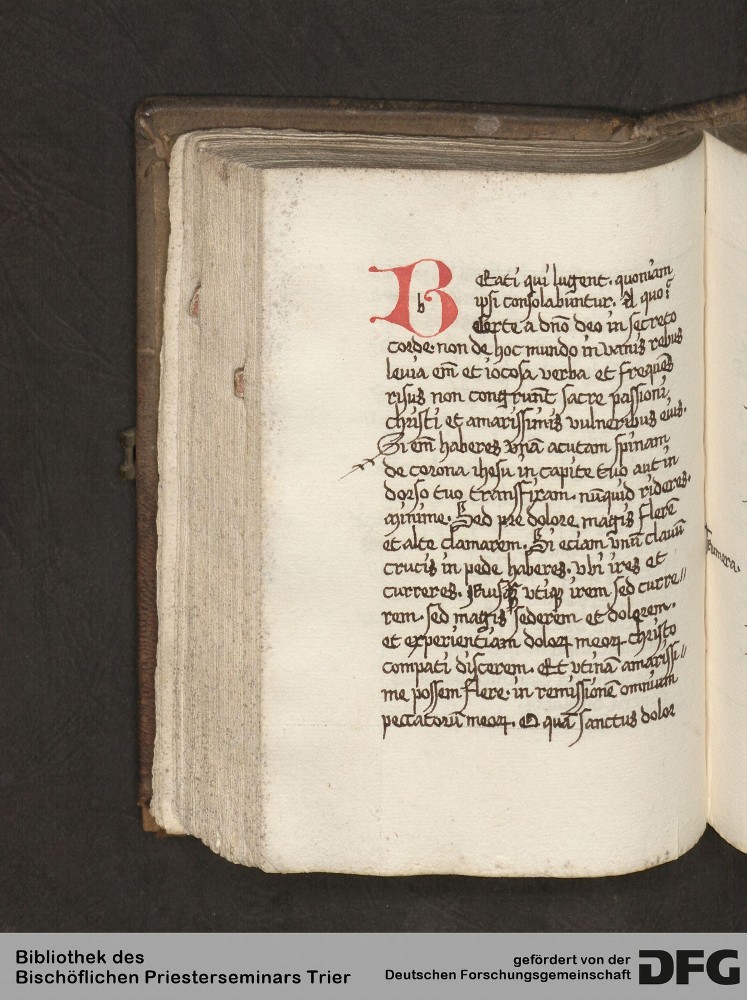 Beati qui lugent. quoniam
ipsi consolabuntur. A quo?
Certe a dno deo in secreto
corde. non de hoc mundo in vanis rebus
leuia em et iocosa verba et frequens
risus non congruunt sacre passioni
christi et amarissimis vulneribus eius.
Si em haberes vnam acutam spinam
de corona ihesu in capite tuo aut in
dorso tuo transfixam. nunquid rideres.
Minime. Sed pre dolore magis flerem
et alte clamarem. Si eciam vnum clauum
crucis in pede haberes. vbi ires et
curreres. vtique irem sed curre//
rem. sed magis sederem et dolerem.
et experientiam dolorum meorum christo
compati discerem. Et vtinam amarissi//
me possem flere. in remissionem omnium
peccatorum meorum. O quam sanctus dolor
b
Bibliothek des
Bischöflichen Priesterseminars Trier
gefördert von der
Deutschen Forschungsgemeinschaft
DFG